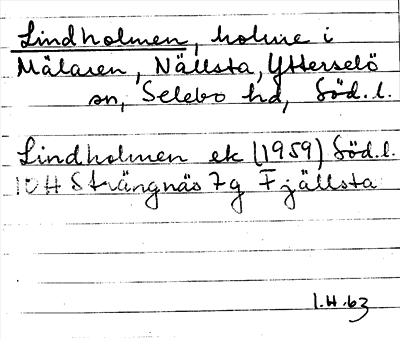 Lindholmen, holme i
Mälaren, Nällsta, Ytterselö
sn, Selebo hd, Söd.l.
Lindholmen ek (1959) Söd.l.
10H Strängnäs 7g Fjällsta
1.H.63